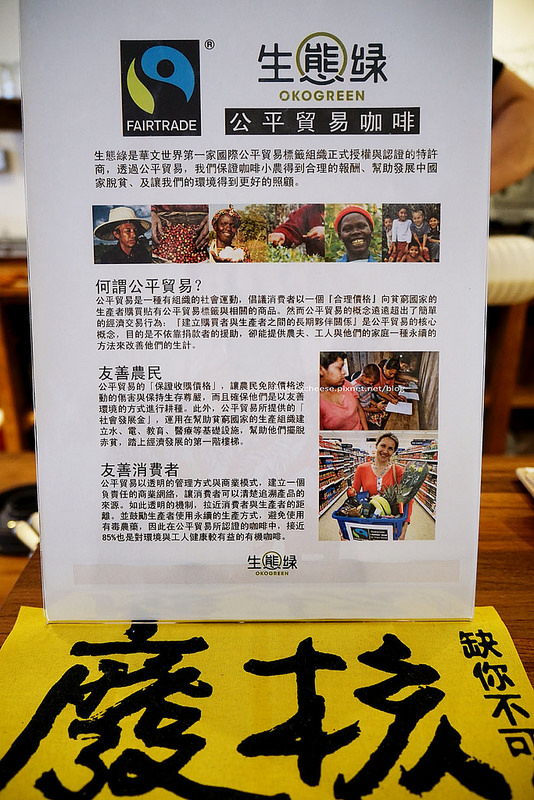 FAIRTRADE
®
生態綠
OKOGREEN
公平貿易咖啡
生態綠是華文世界第一家國際公平貿易標籤組織正式授權與認證的特許
商，透過公平貿易，我們保證咖啡小農得到合理的報酬、幫助發展中國
家脫貧、及讓我們的環境得到更好的照顧。
何謂公平貿易？
公平貿易是一種有組織的社會運動，倡議消費者以一個『合理價格』向貧窮國家的
生產者購買貼有公平貿易標籤與相關的商品。然而公平貿易的概念遠遠超出了簡單
的經濟交易行為；「建立購買者與生產者之間的長期夥伴關係」是公平貿易的核心
概念，目的是不依靠捐款者的援助，卻能提供農夫、工人與他們的家庭一種永續的
方法來改善他們的生計。
友善農民
公平貿易的「保證收購價格」，讓農民免除價格波
動的傷害與保持生存尊嚴，而且確保他們是以友善
環境的方式進行耕種。此外，公平貿易所提供的「
社會發展金」，運用在幫助貧窮國家的生產組織建
立水、電、教育、醫療等基礎設施，幫助他們擺脫
赤貧，踏上經濟發展的第一階樓梯。
cheese.pixnet.net/blog
友善消費者
公平貿易以透明的管理方式與商業模式，建立一個
負責任的商業網絡，讓消費者可以清楚追溯產品的
來源。如此透明的機制，拉近消費者與生產者的距
離，並鼓勵生產者使用永續的生產方式，避免使用
有毒農藥，因此在公平貿易所認證的咖啡中，接近
85%也是對環境與工人健康較有益的有機咖啡。
FAIRTRADE
生態綠
OKOGREEN
廢核
缺你不可